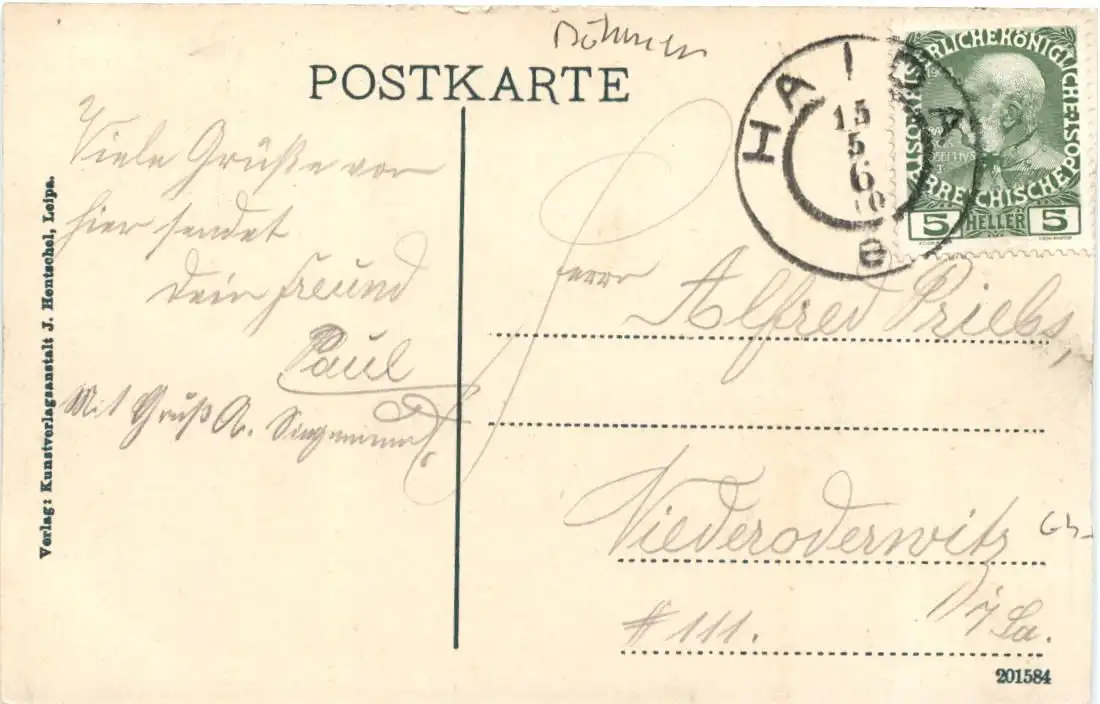 Böhmen
POSTKARTE
HAIDA
15
5
6
10
e
KAISERLICHE KÖNIGLICHE
ÖSTERREICHISCHE POST
5 HELLER 5
Viele Grüße von
hier sendet
Dein Freund
Paul
Mit Gruß A.
Herrn Alfred Priebs,
Niederoderwitz
# 111. i/Sa.
Verlag: Kunstverlagsanstalt J. Hentschel, Leipa.
201584